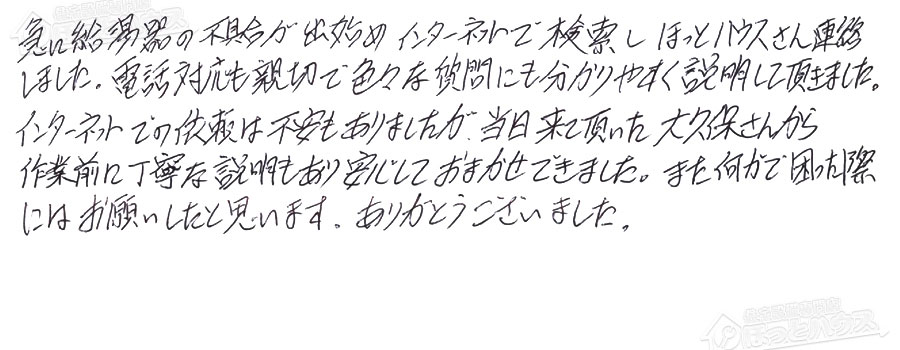 急に給湯器の不具合が出始めインターネットで検索しほっとハウスさん連絡
しました。電話対応も親切で色々な質問にも分かりやすく説明して頂きました。
インターネットでの依頼は不安もありましたが、当日来て頂いた大久保さんから
作業前に丁寧な説明もあり安心しておまかせできました。また何かで困った際
にはお願いしたと思います。ありがとうございました。
ほっとハウス